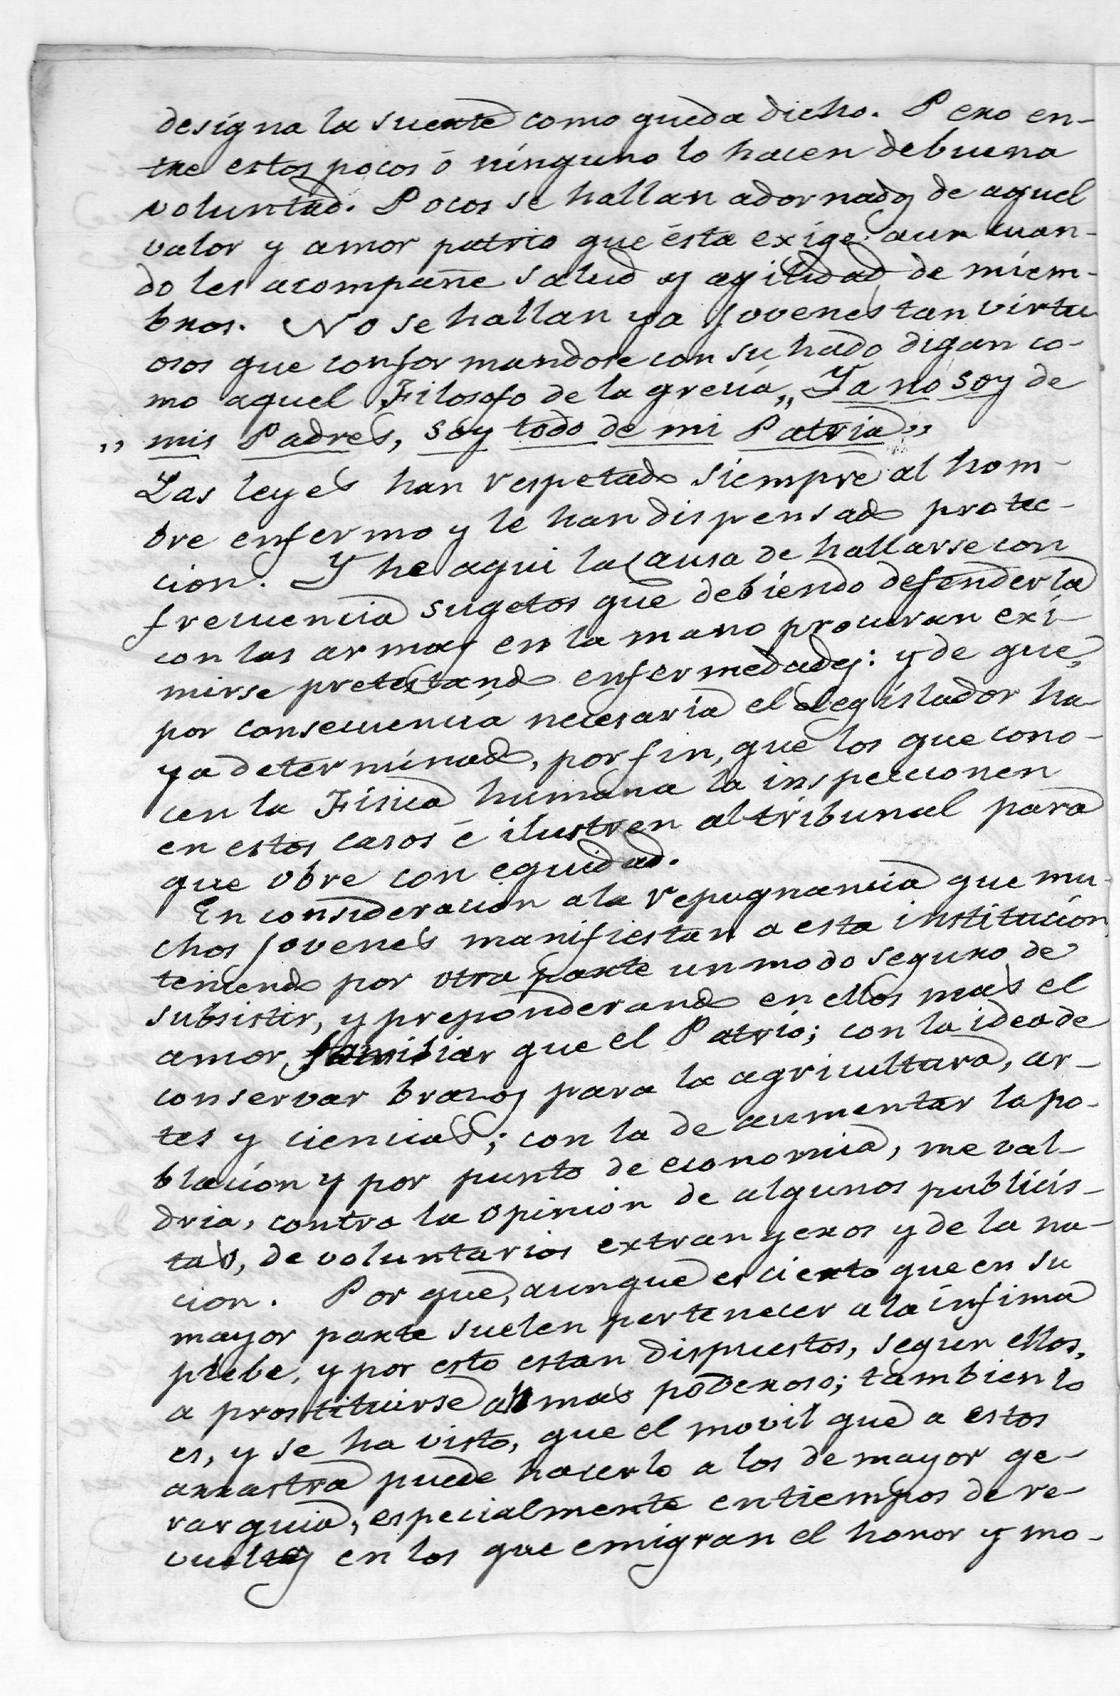 designa la suerte como queda dicho. Pero en-
tre estos pocos ó ninguno lo hacen de buena
voluntad. Pocos se hallan adornados de aquel
valor y amor patrio que ésta exige: aun cuan-
do les acompañe salud y agilidad de miem-
bros. No se hallan ya Jovenes tan virtu
osos que conformandose con su hado digan co-
mo aquel Filosofo de la grecia „ Ya no soy de
„ mis Padres, soy todo de mi Patria „
Las leyes han respetado siempre al hom-
bre enfermo y le han dispensado protec-
cion. Y he aqui la causa de hallarse con
frecuencia sugetos que debiendo defenderla
con las armas en la mano procuran exi-
mirse pretestando enfermedades: y de que,
por consecuencia necesaria el legislador ha-
ya determinado, por fin, que los que cono-
cen la Fisica humana la inspeccionen
en estos casos é ilustren al tribunal para
que obre con equidad.
En consideracion a la repugnancia que mu-
chos Jovenes manifiestan a esta institución
teniendo por otra parte un modo seguro de
subsistir, y preponderando en ellos mas el
amor familiar que el Patrio; con la idea de
conservar brazos para la agricultura, ar-
tes y ciencias; con la de aumentar la po-
blacion y por punto de economia, me val-
dria, contra la opinion de algunos publicis-
tas, de voluntarios extrangeros y de la na-
cion. Por que, aunque es cierto que en su
mayor parte suelen pertenecer a la infima
plebe, y por esto estan dispuestos, segun ellos,
a prostituirse al mas poderoso; tambien lo
es, y se ha visto, que el movil que a estos
arrastra puede hacerlo a los de mayor ge-
rarquia, especialmente en tiempos de re-
vueltas en los que emigran el honor y mo-